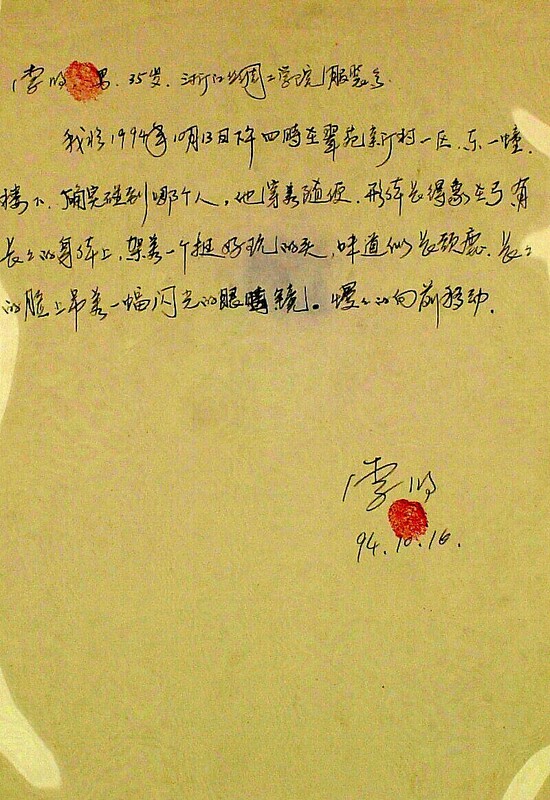 李明 男. 35岁. 浙江丝绸工学院服装系.
我于1994年10月13日下午四時在翠苑新村一区.东一幢.
楼下.确实碰到哪个人,他穿着随便.形体长得象 弓.有
长々的身体上,架着一个挺好玩的头,味道似长颈鹿.长々
的脸上吊着一幅闪光的眼睛镜。慢々的向前移动.
李明
94.10.16.